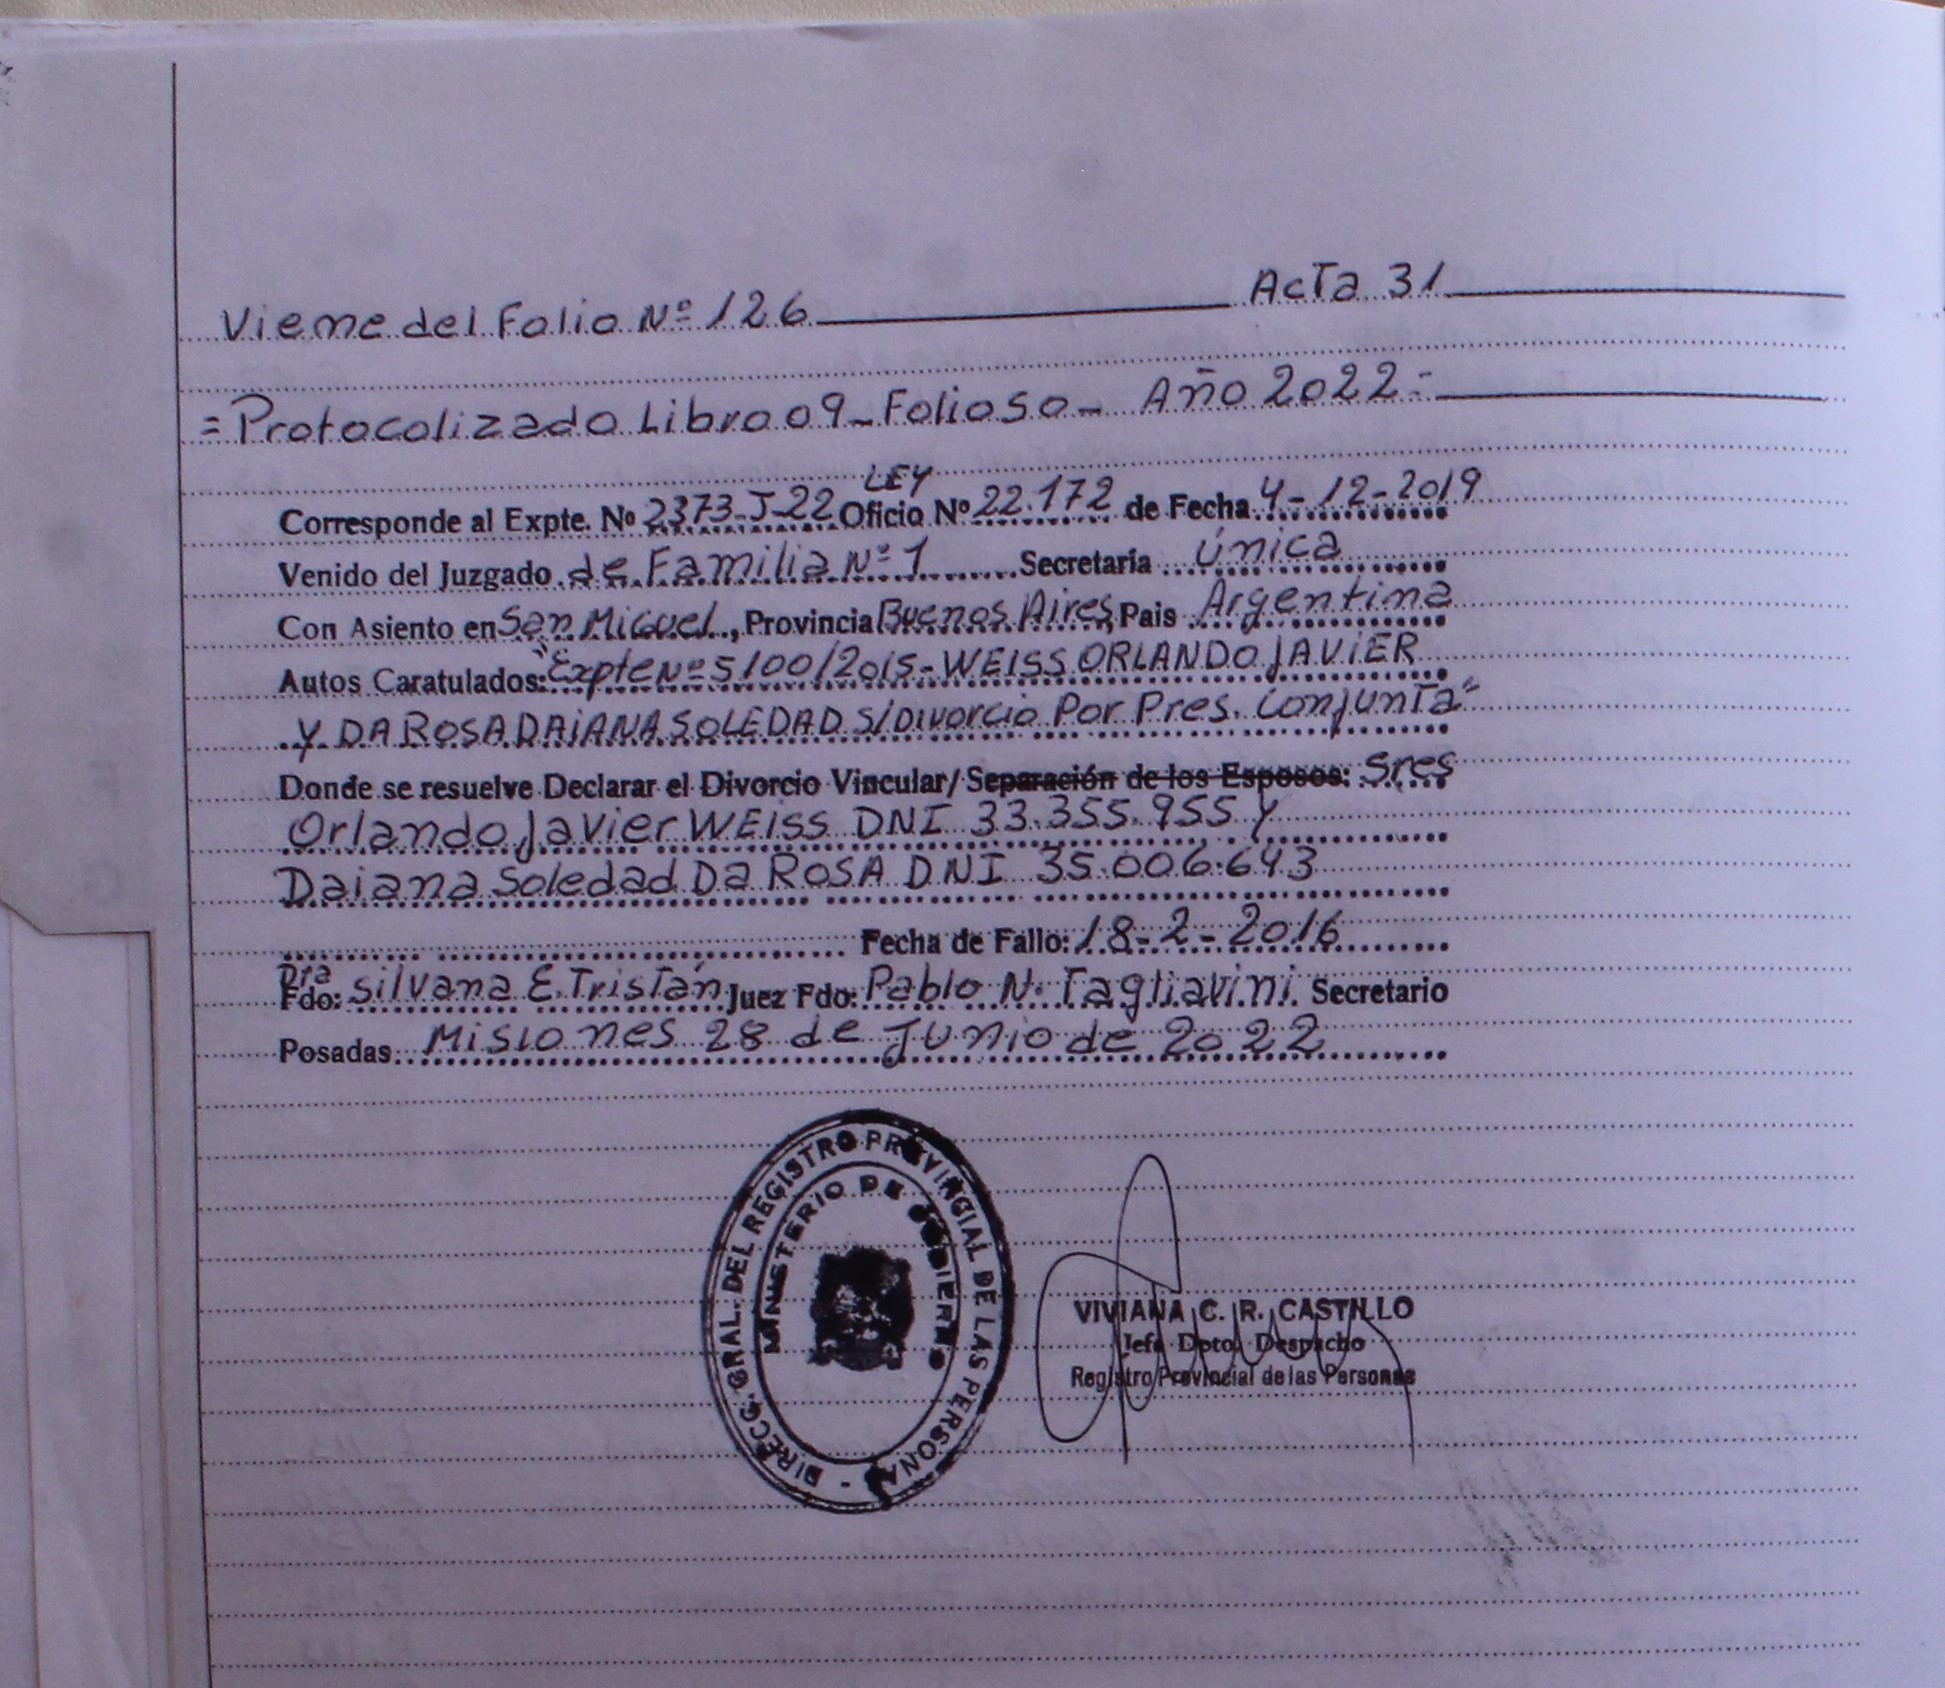 Viene del Folio Nº 126 Acta 31
=Protocolizado Libro 09 - Folio 50 - Año 2022=
LEY
Corresponde al Expte. Nº 2373-J-22 Oficio Nº 22.172 de Fecha 4-12-2019
Venido del Juzgado de Familia Nº 1 Secretaría única
Con Asiento en San Miguel, Provincia Buenos Aires, Pais Argentina
Autos Caratulados: "Expte Nº 5100/2015-WEISS ORLANDO JAVIER
y DA ROSA DAIANA SOLEDAD S/Divorcio Por Pres. Conjunta"
Donde se resuelve Declarar el Divorcio Vincular/ Separación de los Esposos: Sres
Orlando Javier WEISS DNI 33.355.955 y
Daiana Soledad Da ROSA DNI 35.006.643
Fecha de Fallo: 18-2-2016
Dra
Fdo: Silvana E. Tristán Juez Fdo: Pablo N. Tagliavini Secretario
Posadas Misiones 28 de Junio de 2022
DIRECC. GRAL. DEL REGISTRO PROVINCIAL DE LAS PERSONAS -
MINISTERIO DE GOBIERNO
VIVIANA C. R. CASTILLO
Jefe Dpto. Despacho
Registro Provincial de las Personas